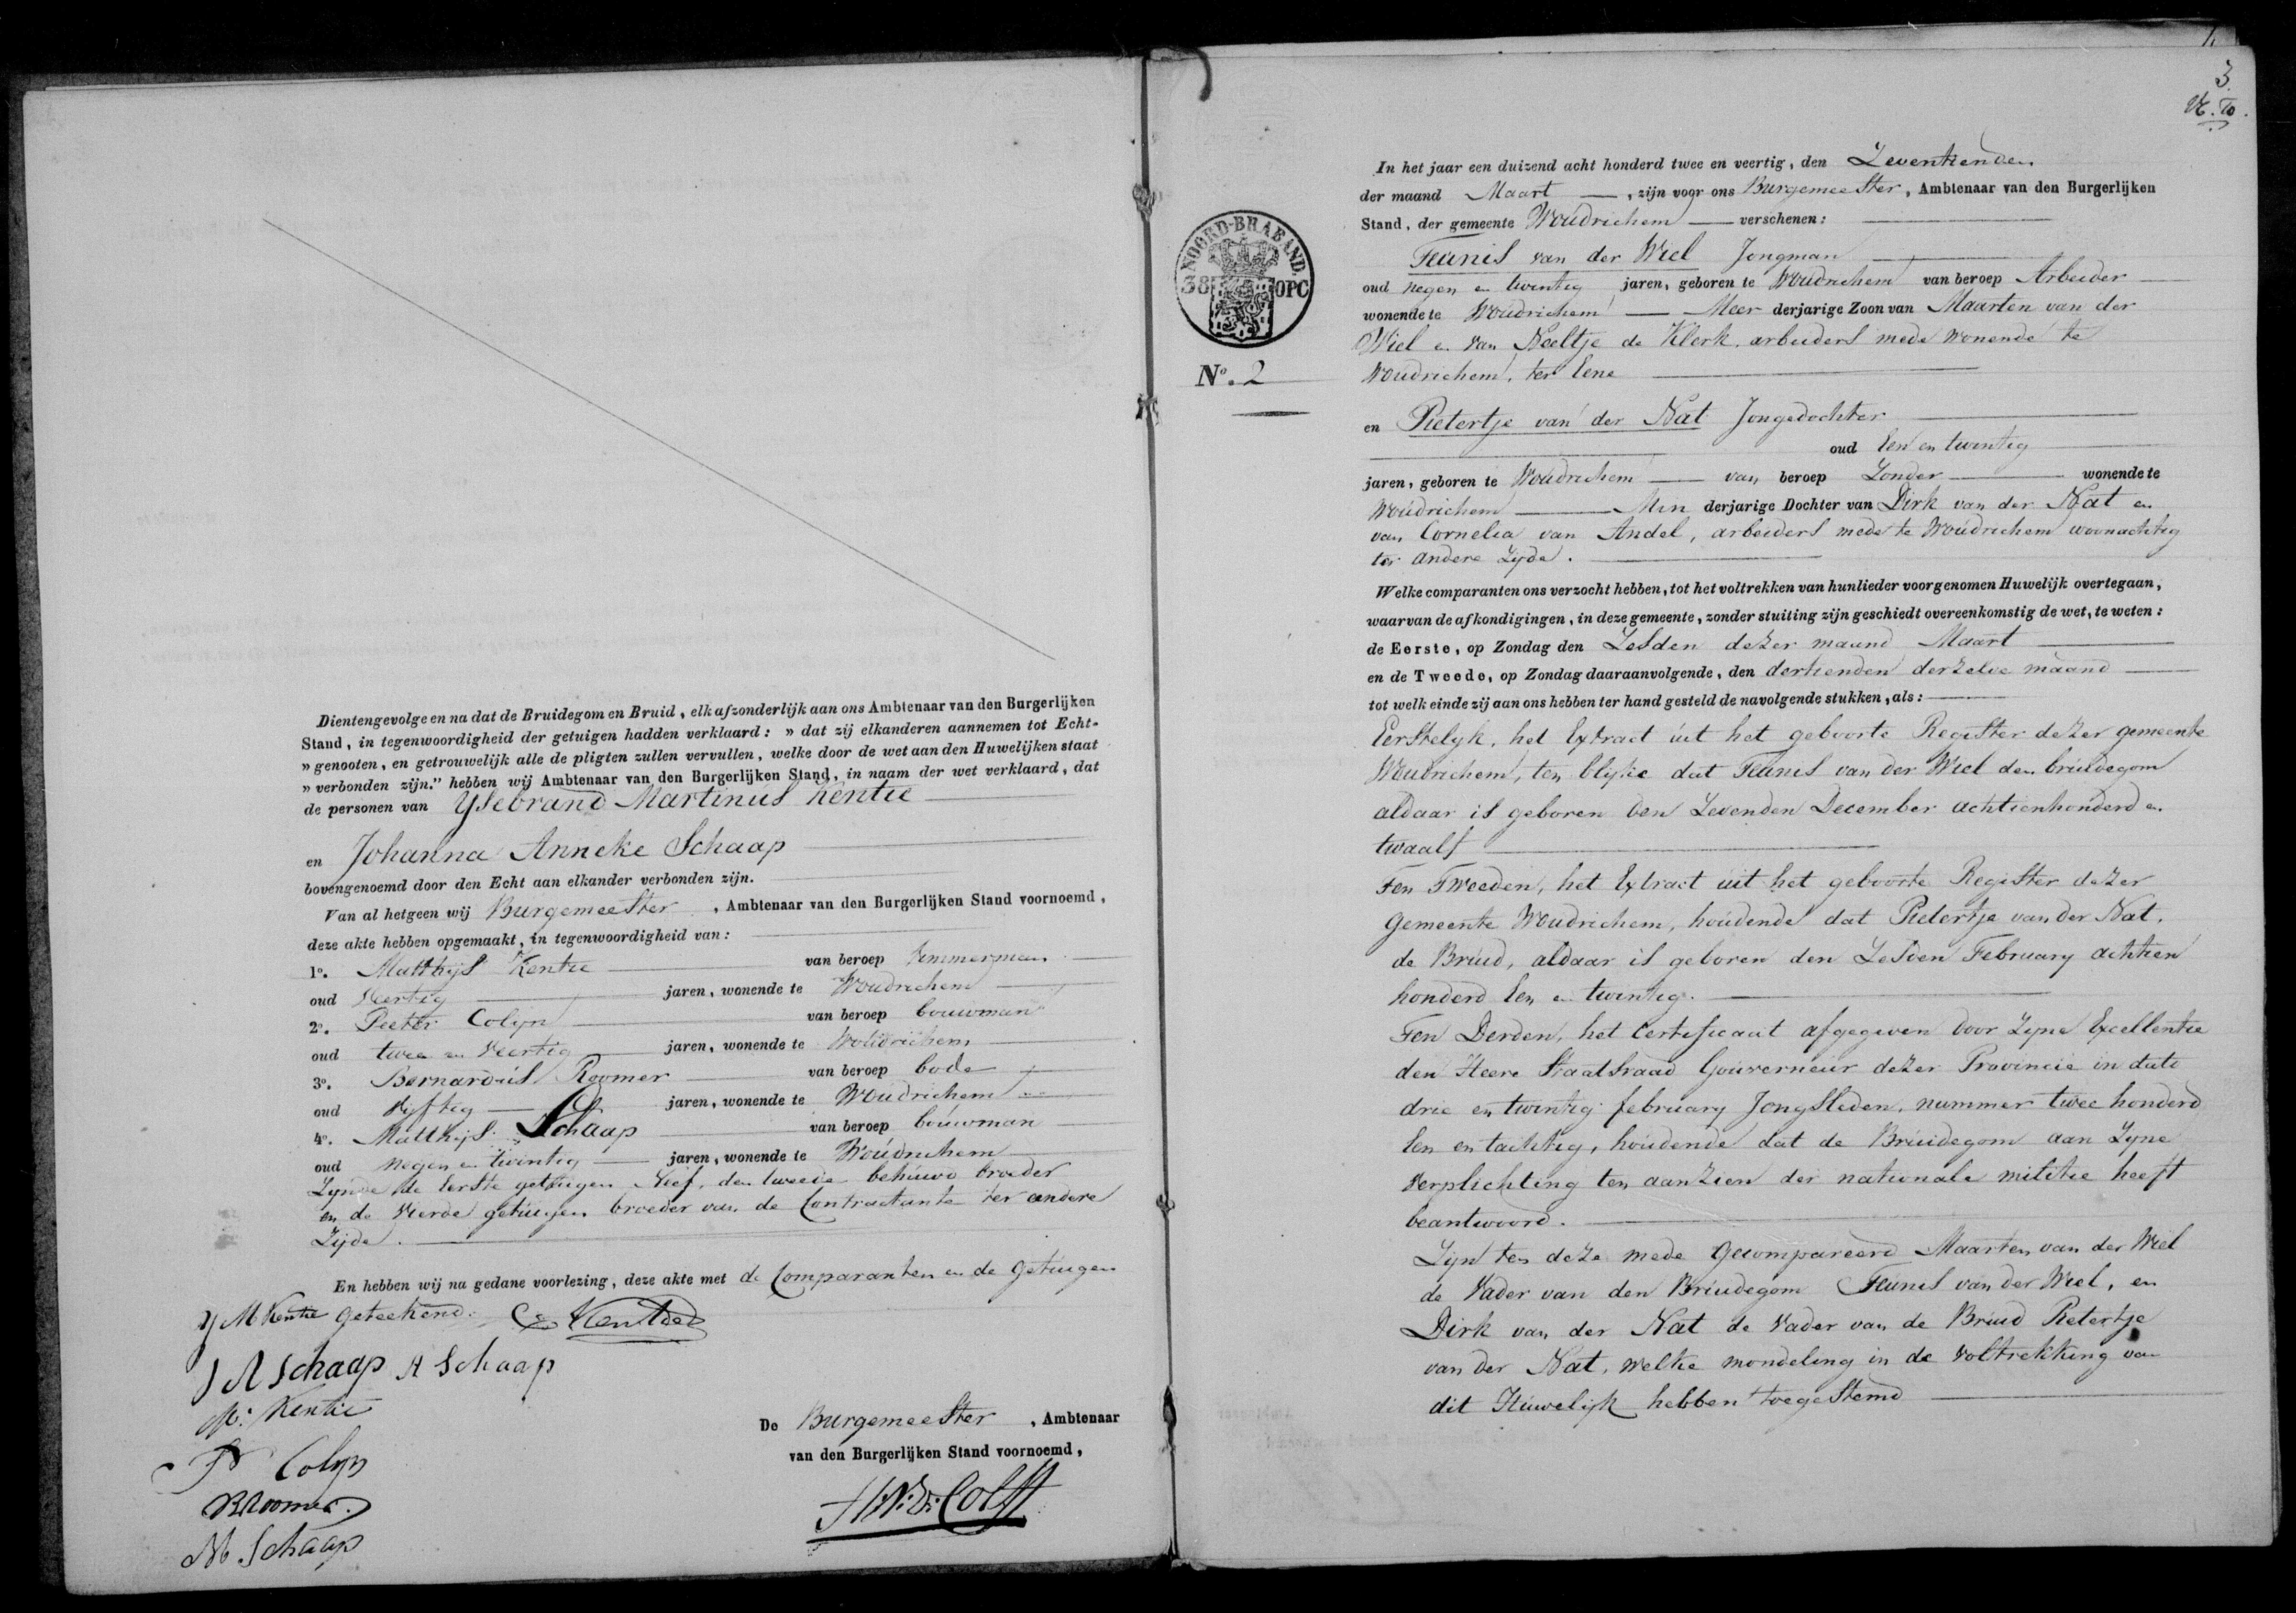 Dientengevolge en na dat de Bruidegom en Bruid, elk afzonderlijk aan ons Ambtenaar van den Burgerlijken
Stand, in tegenwoordigheid der getuigen hadden verklaard: » dat zij elkanderen aannemen tot Echt-
» genooten, en getrouwelijk alle de pligten zullen vervullen, welke door de wet aan den Huwelijken staat
» verbonden zijn." hebben wij Ambtenaar van den Burgerlijken Stand, in naam der wet verklaard, dat
de personen van Ysebrand Martinus Kentie
en Johanna Anneke Schaap
bovengenoemd door den Echt aan elkander verbonden zijn.
Van al hetgeen wij Burgemeester, Ambtenaar van den Burgerlijken Stand voornoemd,
deze akte hebben opgemaakt, in tegenwoordigheid van:
1o. Matthijs Kentie van beroep timmerman
oud Veertig jaren, wonende te Woudrichem
2o. Pieter Colyn van beroep bouwman
oud twee en Veertig jaren, wonende te Woudrichem
3o. Bernardus Roomer van beroep bode
oud Vyftig jaren, wonende te Woudrichem
4o. Matthijs Schaap van beroep bouwman
oud negen en twintig jaren, wonende te Woudrichem
Zynde de Eerste getuigen Neef, den tweede behuwd broeder
en de Vierde getuigen broeder van de Contractante ter andere
Zijde.
En hebben wij na gedane voorlezing, deze akte met de Comparanten en de Getuigen
Y M Kentie geteekend. Kentie
J A Schaap A Schaap
M: Kentie
P Colyn
B Roomer.
M Schaap
De Burgemeester, Ambtenaar
van den Burgerlijken Stand voornoemd,
3
NOORD-BRABAND.
38 OPC
No. 2
In het jaar een duizend acht honderd twee en veertig, den Zeventienden
der maand Maart, zijn voor ons Burgemeester, Ambtenaar van den Burgerlijken
Stand, der gemeente Woudrichem verschenen:
Teunis van der Wiel Jongman
oud negen en twintig jaren, geboren te Woudrichem van beroep Arbeider
wonende te Woudrichem Meer derjarige Zoon van Maarten van der
Wiel en van Neeltje de Klerk. arbeiders mede wonende te
Woudrichem, ter Eene
en Pietertje van der Nat Jongedochter
oud Een en twintig
jaren, geboren te Woudrichem van beroep Zonder wonende te
Woudrichem Min derjarige Dochter van Dirk van der Nat en
van Cornelia van Andel, arbeiders mede te Woudrichem woonachtig
ter andere Zijde.
Welke comparanten ons verzocht hebben, tot het voltrekken van hunlieder voorgenomen Huwelijk overtegaan,
waarvan de afkondigingen, in deze gemeente, zonder stuiting zijn geschiedt overeenkomstig de wet, te weten:
de Eerste, op Zondag den Zesden dezer maand Maart
en de Tweede, op Zondag daaraanvolgende, den dertienden derzelve maand
tot welk einde zij aan ons hebben ter hand gesteld de navolgende stukken, als:
Eerstelyk, het Extract uit het geboorte Register dezer gemeente
Woudrichem, ten blyke dat Teunis van der Wiel den bruidegom
aldaar is geboren den Zevenden December achtienhonderd en
twaalf
Ten Tweeden, het Extract uit het geboorte Register dezer
Gemeente Woudrichem, houdende dat Pietertje van der Nat,
de Bruid, aldaar is geboren den Zesden February achtien
honderd Een en twintig.
Ten Derden, het Certificaat afgegeven door Zyne Excellentie
den Heere Staatsraad Gouverneur dezer Provincie in dato
drie en twintig february Jongstleden, nummer twee honderd
Een en tachtig, houdende dat de Bruidegom aan Zyne
Verplichting ten aanzien der nationale militie heeft
beantwoord.
Zyn ten deze mede gecompareerd Maarten van der Wiel
de Vader van den Bruidegom Teunis van der Wiel, en
Dirk van der Nat de Vader van de Bruid Pietertje
van der Nat, welke mondeling in de Voltrekking van
dit Huwelijk hebben toegestemd